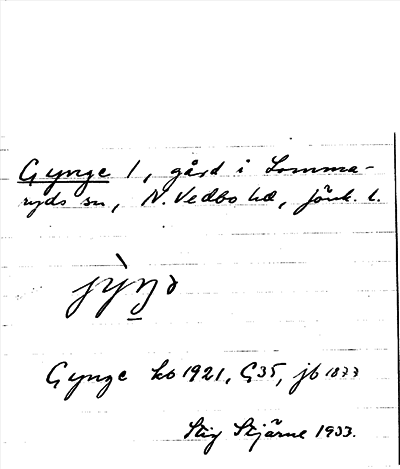 Gynge 1, gård i Somma-
ryds sn, N. Vedbo hd, Jönk. l.
jỳŋə
Gynge ko 1921, G35, jb 1877
Stig Stjärne 1933.